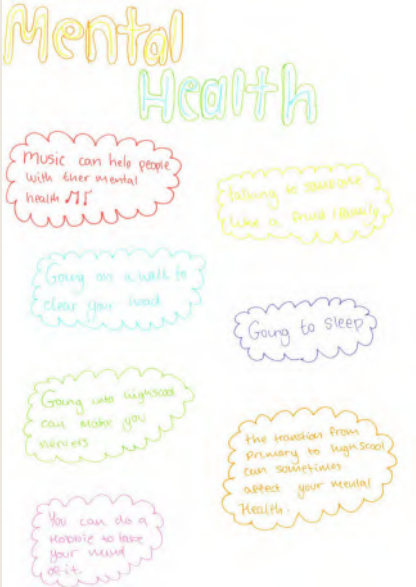 Mental
Health
Music can help people
with ther mental
health
talking to someone
like a friend / family
Going on a walk to
clear your head
Going to sleep
Going into highscool
can make you
nervers
the transtion from
primary to highscool
can sometimes
affect your mental
Health.
You can do a
Hobbie to take
your mind
of it.